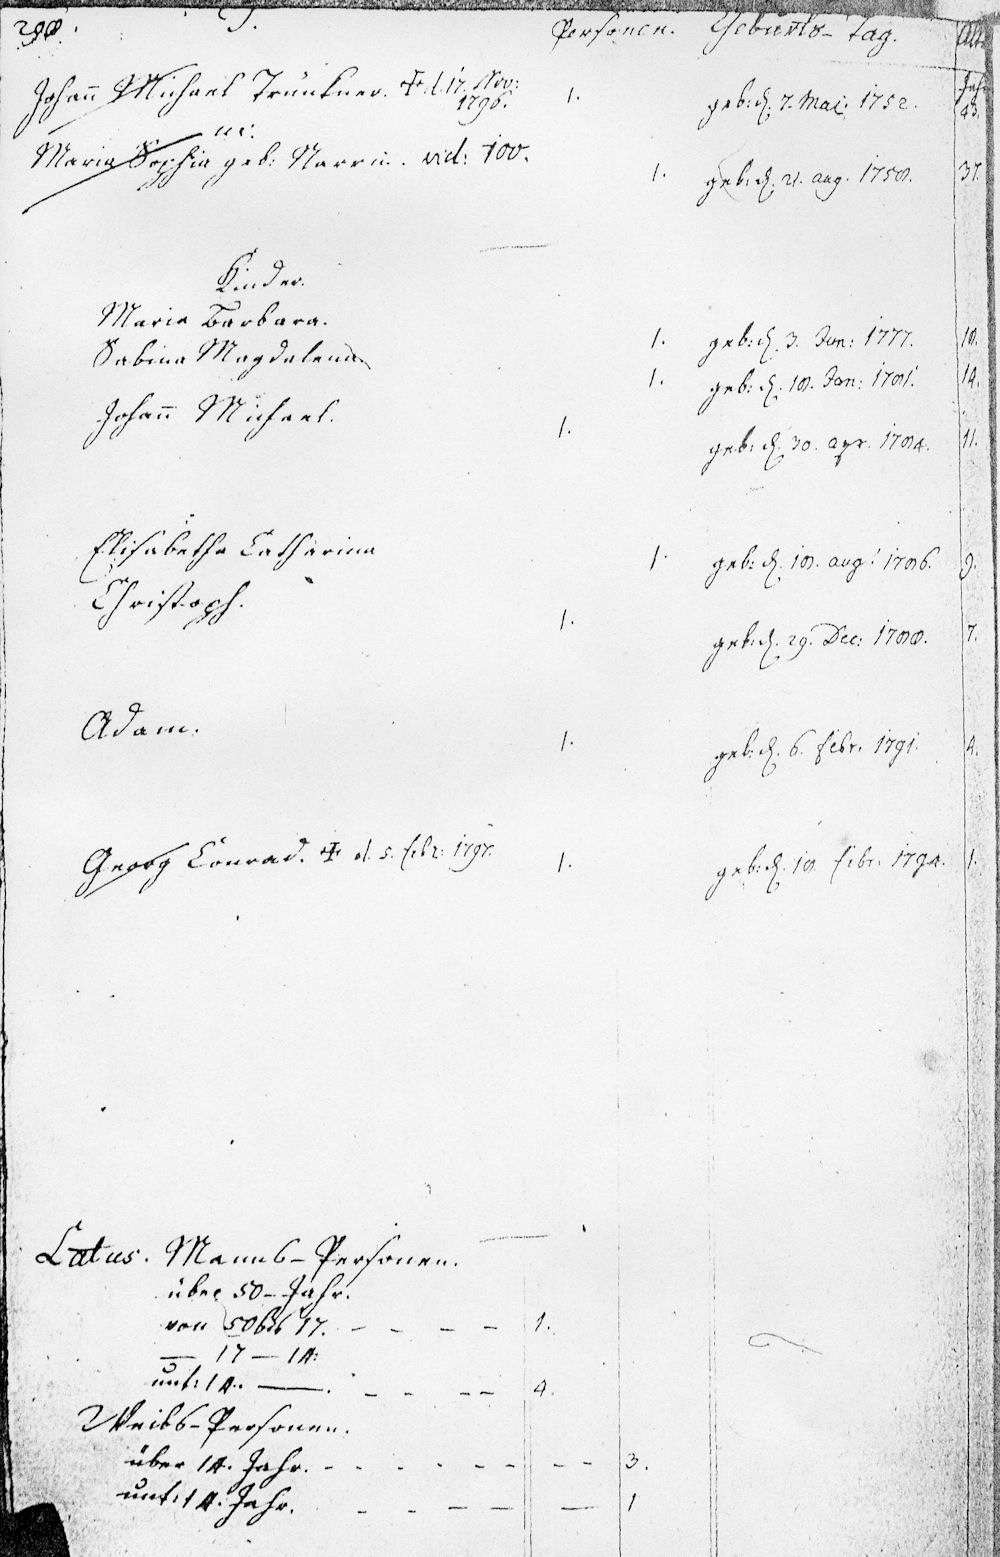 298. T. Personen. Geburts-Tag. Alt.
Jahr
Johann Michael Trunkner. ✠ d. 17. Nov: 1. geb: d. 7. Mai. 1752. 43.
1796.
ux:
Maria Sophia geb: vid: 100. 1. geb: d. 21. aug. 1758. 37.
Kinder.
Maria Barbara. 1. geb: d. 3. Jun: 1777. 18.
Sabina Magdalena. 1. geb: d. 18. Jan: 1781. 14.
Johann Michael. 1. geb: d. 30. apr. 1784. 11.
Elisabetha Catharina 1. geb: d. 18. aug: 1786. 9.
Christoph. 1. geb: d. 29. Dec: 1788. 7.
Adam. 1. geb: d. 6. febr. 1791. 4.
Georg Conrad. ✠ d. 5. febr: 1797. 1. geb: d. 18. febr. 1794. 1.
Latus. Manns-Personen.
über 50-Jahr.
von 50 bis 17. - - - - 1.
— 17 — 14:
unt: 14. —. - - - - 4.
Weibs-Personen.
über 14. Jahr. - - - - - - - - 3.
unt: 14. Jahr. - - - - — 1